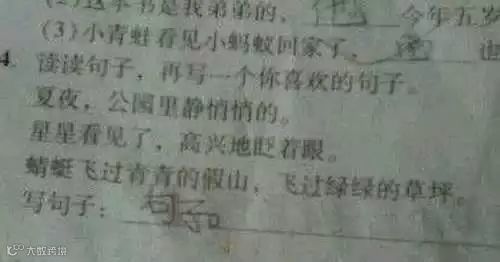 (2)这本书是我弟弟的，他 今年五岁
(3)小青蛙看见小蚂蚁回家了，
4. 读读句子，再写一个你喜欢的句子。
夏夜，公园里静悄悄的。
星星看见了，高兴地眨着眼。
蜻蜓飞过青青的假山，飞过绿绿的草坪。
写句子：句子
大数跨境